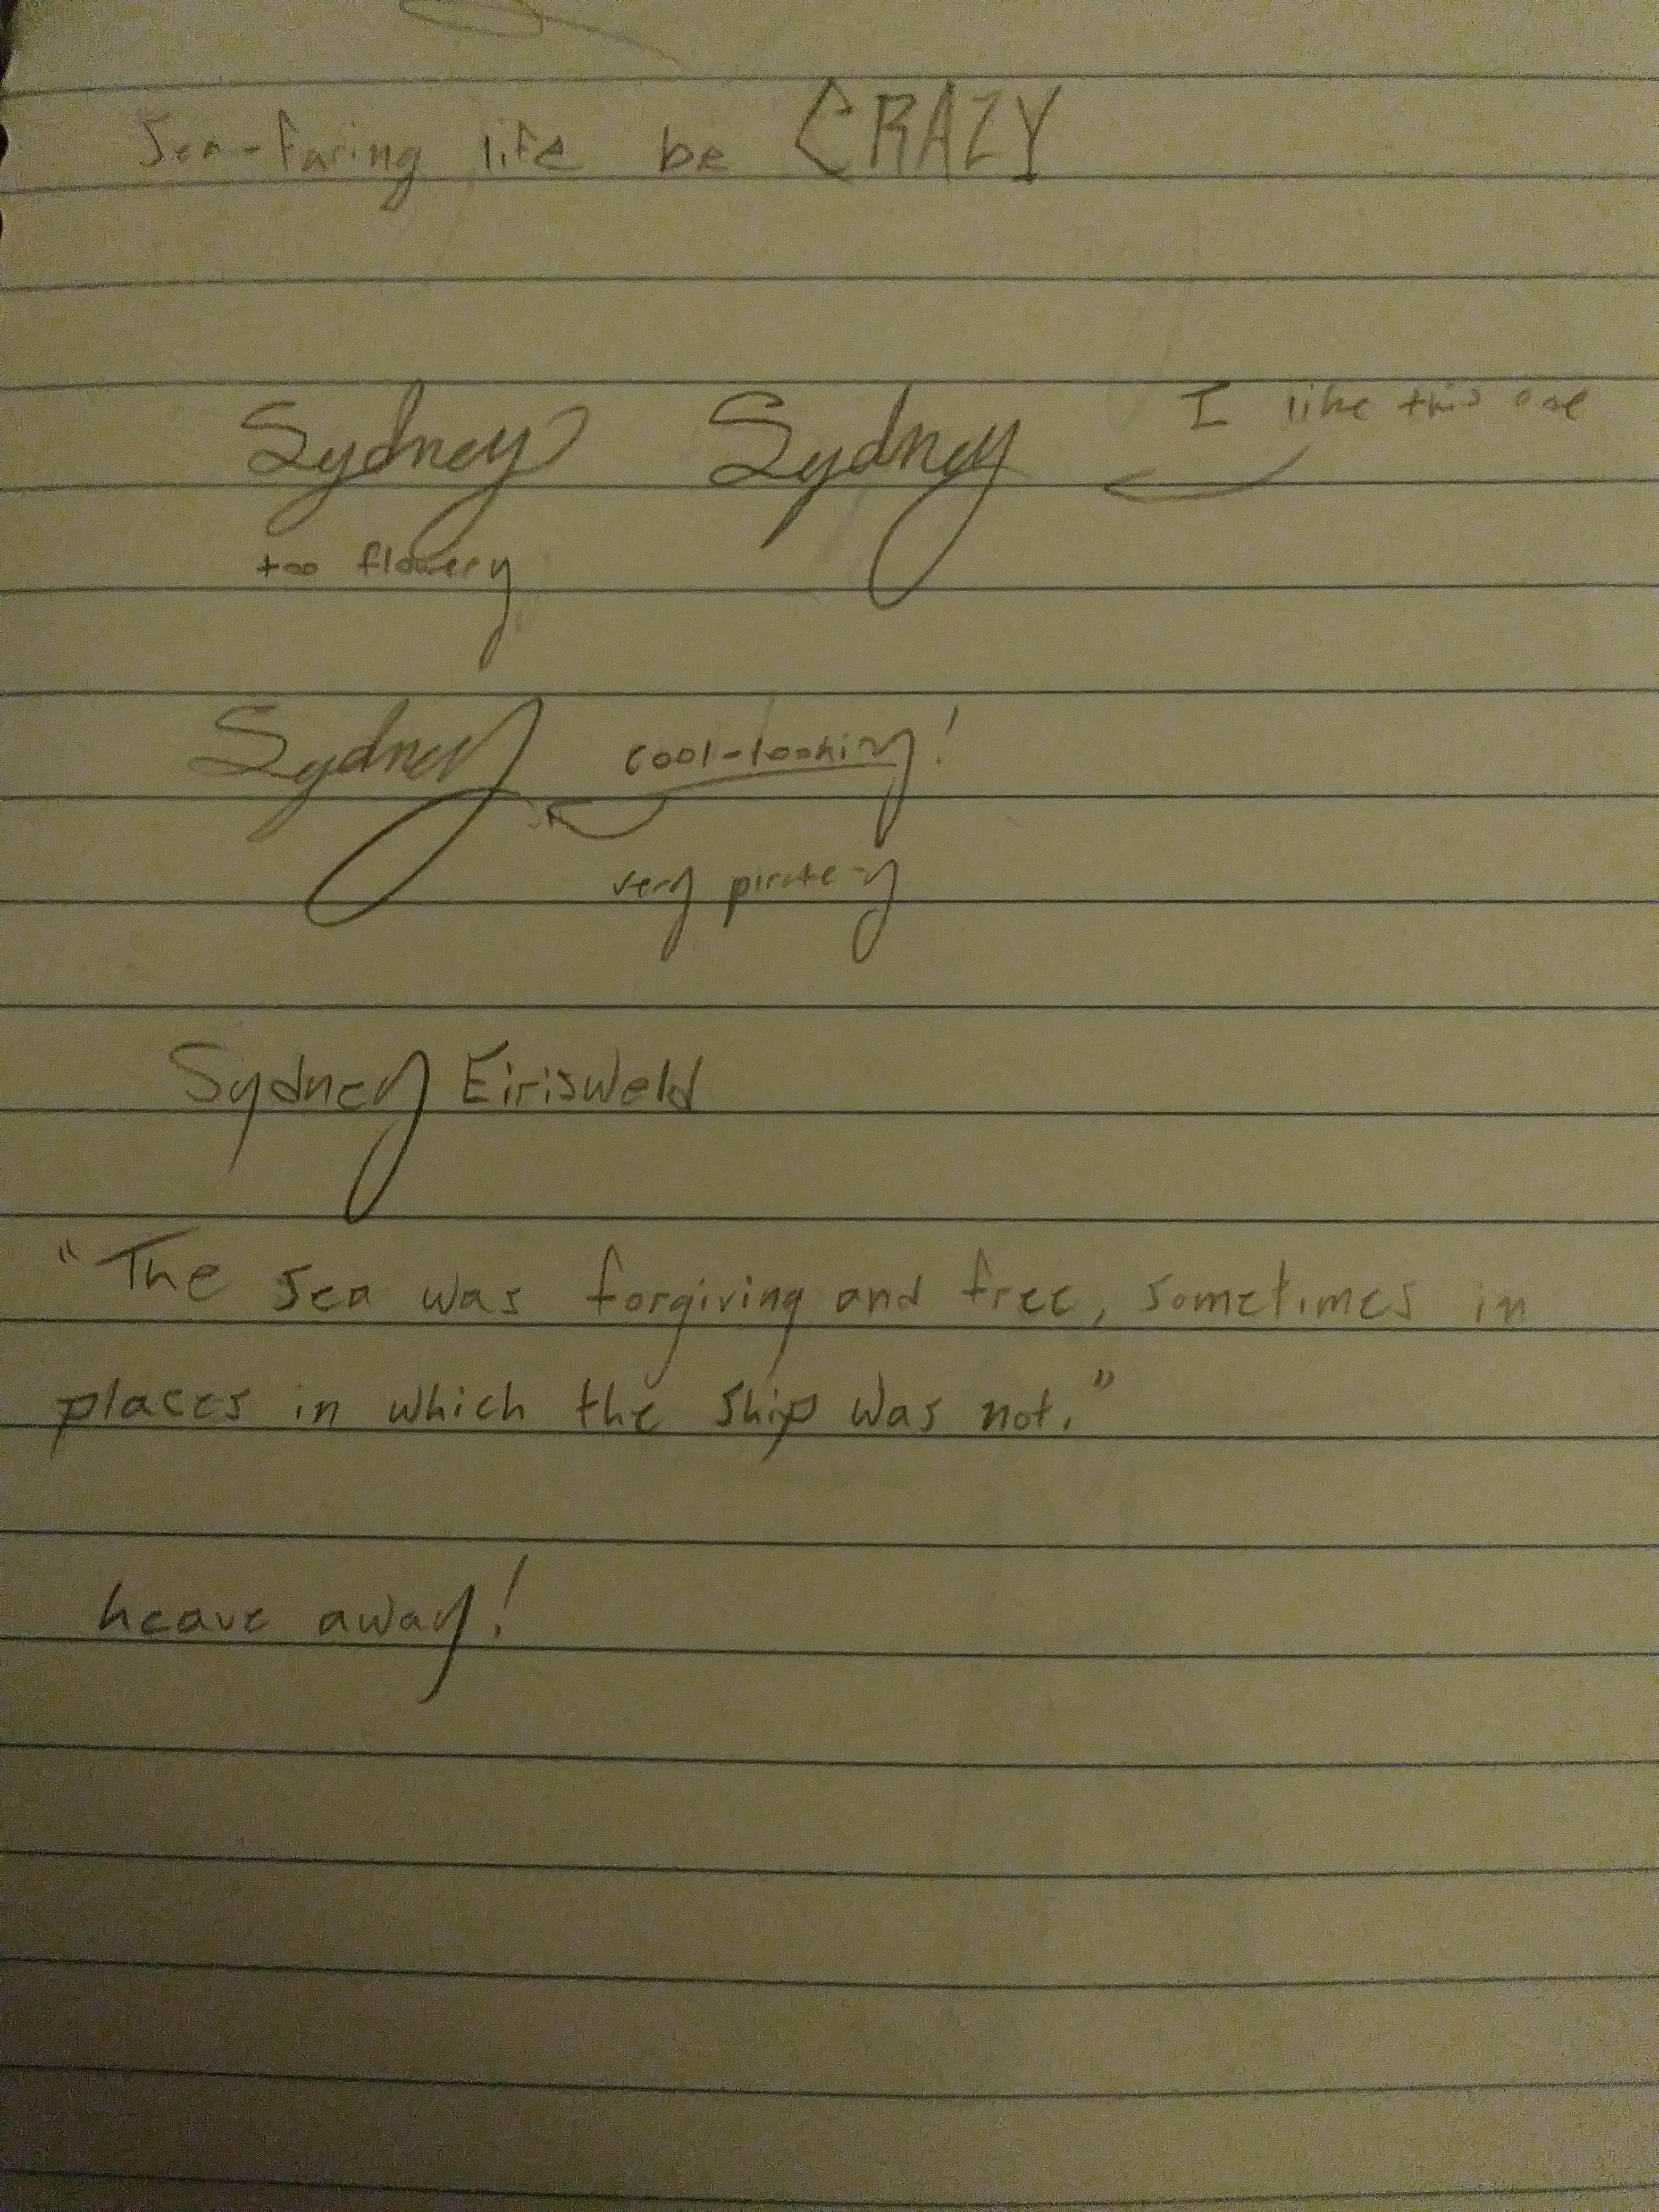 Sea-faring life be CRAZY
Sydney Sydney I like this one
too flowery
Sydney cool-looking!
very pirate-y
Sydney Eirisweld
"The sea was forgiving and free, sometimes in
places in which the ship was not."
heave away!